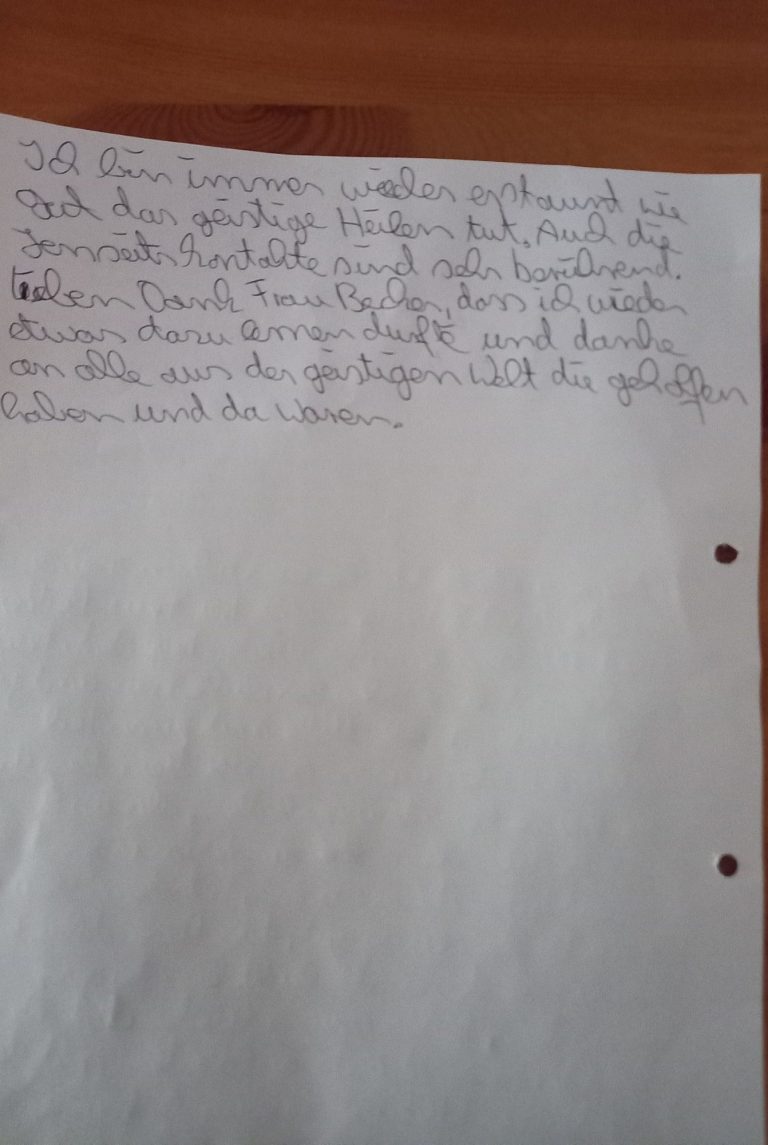 Ich bin immer wieder erstaunt wie
gut das geistige Heilen tut. Auch die
Jenseitskontakte sind sehr berührend.
lieben Dank Frau Becher, dass ich wieder
etwas dazu lernen durfte und danke
an alle aus der geistigen Welt die geholfen
haben und da waren.